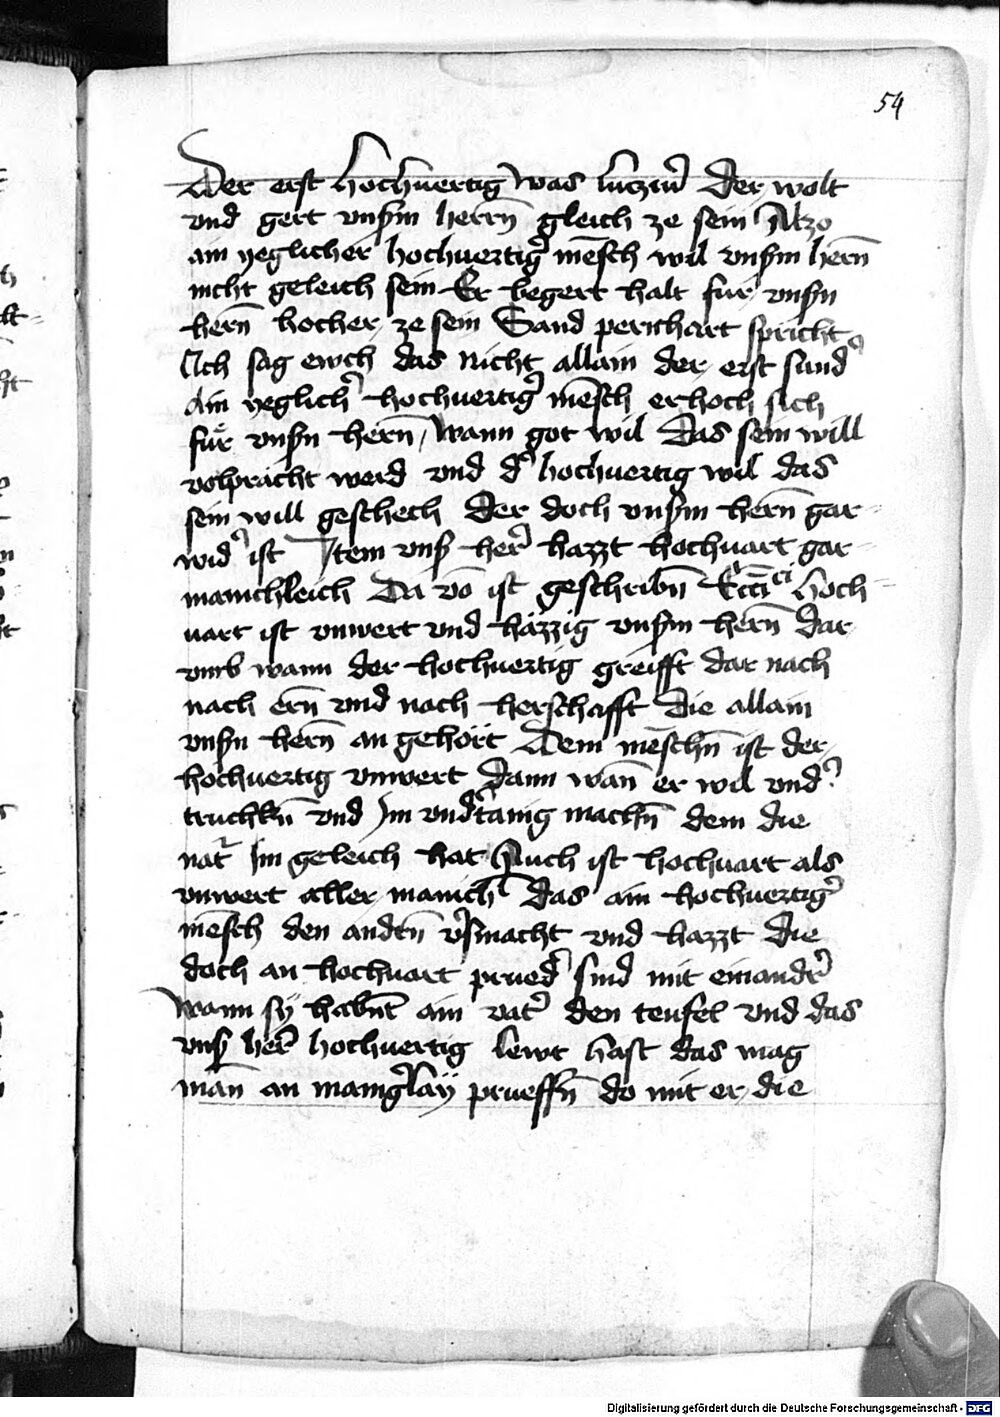 54
Der erst hochuertig was luczifer Der wolt
vnd gert vnßm herrn̄ gleich ze sein Also
ain yeglicher hochuertig̉ mēsch wil vnßm hern̄
nicht geleich sein Er begert halt fur vnßn
hern̄ hocher ze sein Sand pernhart spricht
Ich sag ewch das nicht allain der erst sund̉
Ain yeglich̉ hochuertig̉ mēsch erhoch sich
fur vnßn hern̄ / wann got wil Das sein will
volpracht werd vnd d̉ hochuertig wil das
sein will geschech Der doch vnßm hern̄ gar
wid̉ ist Item vnß her̄ hazzt hochuart gar
manichleich Da vō ist geschribn̄ Eccci hoch
uart ist vnwert vnd häzzig vnßm hern̄ Dar
vmb wann der hochuertig greifft dar nach
nach ern̄ vnd nach herschafft Die allain
vnßn hern̄ an gehört Dem mēschn̄ ist der
hochuertig vnwert Dann wan̄ er wil vnd̉
truckhn̄ vnd Im vnd̉tänig machn̄ dem die
nat̉ Im geleich hat Auch ist hochuart als
vnwert aller manich̉ Das ain hochuertig̉
mēsch den andn̄ v̉smacht vnd hazzt Die
doch an hochuart prued̉ sind mit einand̉
wann sÿ habnt̄ ain vat̉ den teufel vnd das
vnß her̄ hochuertig lewt hast das mag
man̄ an manig̉laÿ prueffn̄ do mit er die
Digitalisierung gefördert durch die Deutsche Forschungsgemeinschaft - DFG